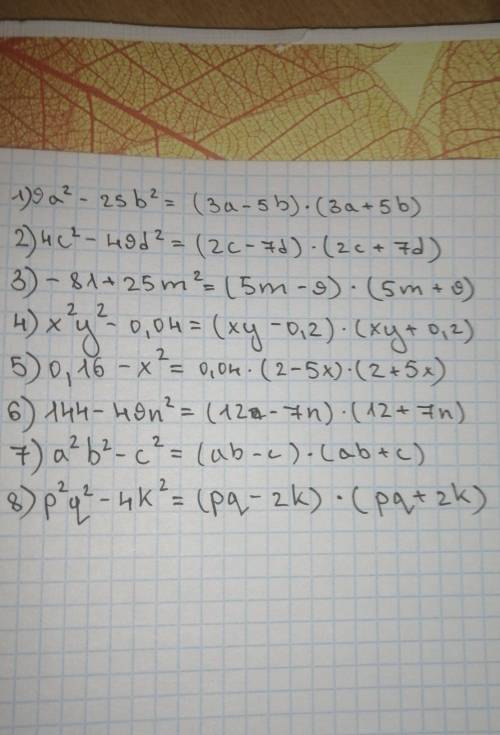 1) 9a² - 25b² = (3a - 5b) · (3a + 5b)
2) 4c² - 49d² = (2c - 7d) · (2c + 7d)
3) - 81 + 25m² = (5m - 9) · (5m + 9)
4) x²y² - 0,04 = (xy - 0,2) · (xy + 0,2)
5) 0,16 - x² = 0,04 · (2 - 5x) · (2 + 5x)
6) 144 - 49n² = (12 - 7n) · (12 + 7n)
7) a²b² - c² = (ab - c) · (ab + c)
8) p²q² - 4k² = (pq - 2k) · (pq + 2k)